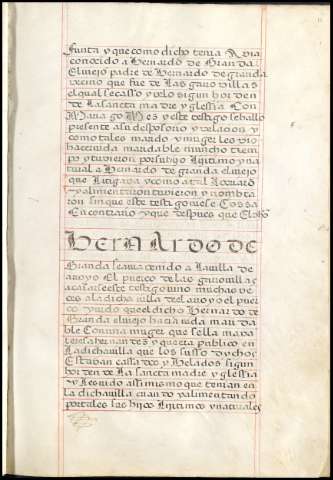 Junta y que como dicho tenia Avia
conocido a Hernardo de Granda
El viejo padre de Hernardo de granda
vecino que fue de Las garovillas
el qual se casso y velo sigun horden
de La sancta madre yglessia Con
Maria gomes y este testigo se hallo
presente a su desposorio y velacion y
como tales marido y muger les vio
hacer vida maridable muncho tiem
po y tuvieron por su hijo lijitimo y na
tural a Hernardo de granda el viejo
que Litigava y como a tal Lo criaro
y alimentaron tuvieron y nombra
ron sin que este testigo viese Cossa
En contrario y que despues que El dho
HERNARDO DE
Granda se avia venido a La villa de
aroyo El puerco de las garrovillas
a casar se este testigo vino muchas ve
ces a la dicha villa de el aroyo el puer
co y vido que el dicho Hernardo de
Granda el viejo hacia vida mari da
ble Con una muger que se llamava
teresa hernandes y que era publico en
La dicha villa que los susso dychos
Estaban cassados y Velados sigun
horden de La sancta madre yglessia
y Les vido assi mismo que tenian en
la dicha villa criando y alimentando
por tales sus hijos Lijitimos y naturales